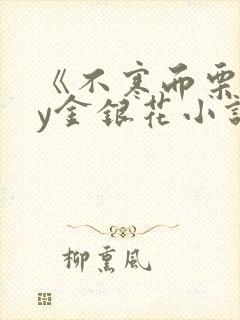 《不寒而栗
y金银花小说
柳熏风